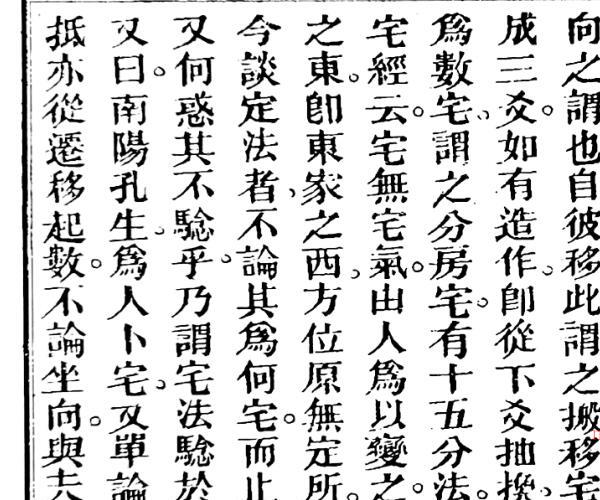 向之謂也自彼移此謂之搬移宅
成三爻。如有造作、卽從下爻抽換、
爲數宅、謂之分房宅。有十五分法。
宅經云。宅無宅氣。由人爲以變之。
之東。卽東家之西、方位原無定所。
今談定法者、不論其爲何宅。而止
又何惑其不騐乎、乃謂宅法騐於
又曰。南陽孔生、爲人卜宅、又單論
抵亦從遷移起數。不論坐向。與夫